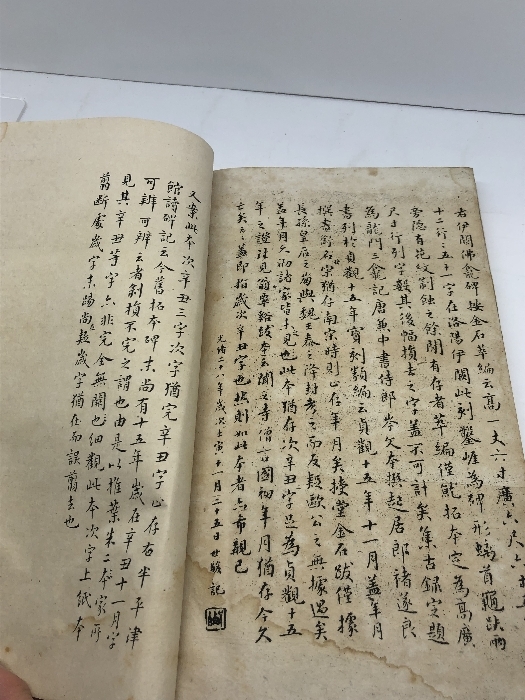 右伊闕佛龕碑按金石萃編云高一丈六寸廣六尺六寸
十二行行五十一字在洛陽伊闕此刻鑿崖為碑形螭首龜趺兩
旁隱有花紋剝蝕之餘間有存者萃編僅就拓本定為高廣
尺寸行列字數其後幅損去之字蓋不可計矣集古錄定題
為龍門三龕記唐兼中書侍郎岑文本撰起居郎褚遂良
書列於貞觀十五年寶刻類編云貞觀十五年十一月蓋年月
撰書姓名宋猶存南宋時則止存年月矣授堂金石跋僅據
長孫皇后之崩與魏王泰之降封考之而反疑歐公之無據過矣
蓋年月久泐諸家皆未之見也此本猶存次辛丑字足為貞觀十五
年之證往見翁學
年月猶存今久
亡矣
歲次辛丑字也然則如此本者六布觀已
光緒二十八年歲次壬寅十一月二十五日
記
又案此本次辛丑三字次字猶完辛丑字止存右半平津
館讀碑記云今舊拓本碑末尚有十五年歲在辛丑十一月字
可辨可辨云者剝損不完之謂也由是以推葉朱二本家所
見其辛丑等字亦非完全無闕也細觀此本次字上紙本
翦斷處歲字末
尚
歲字猶在而誤翦去也